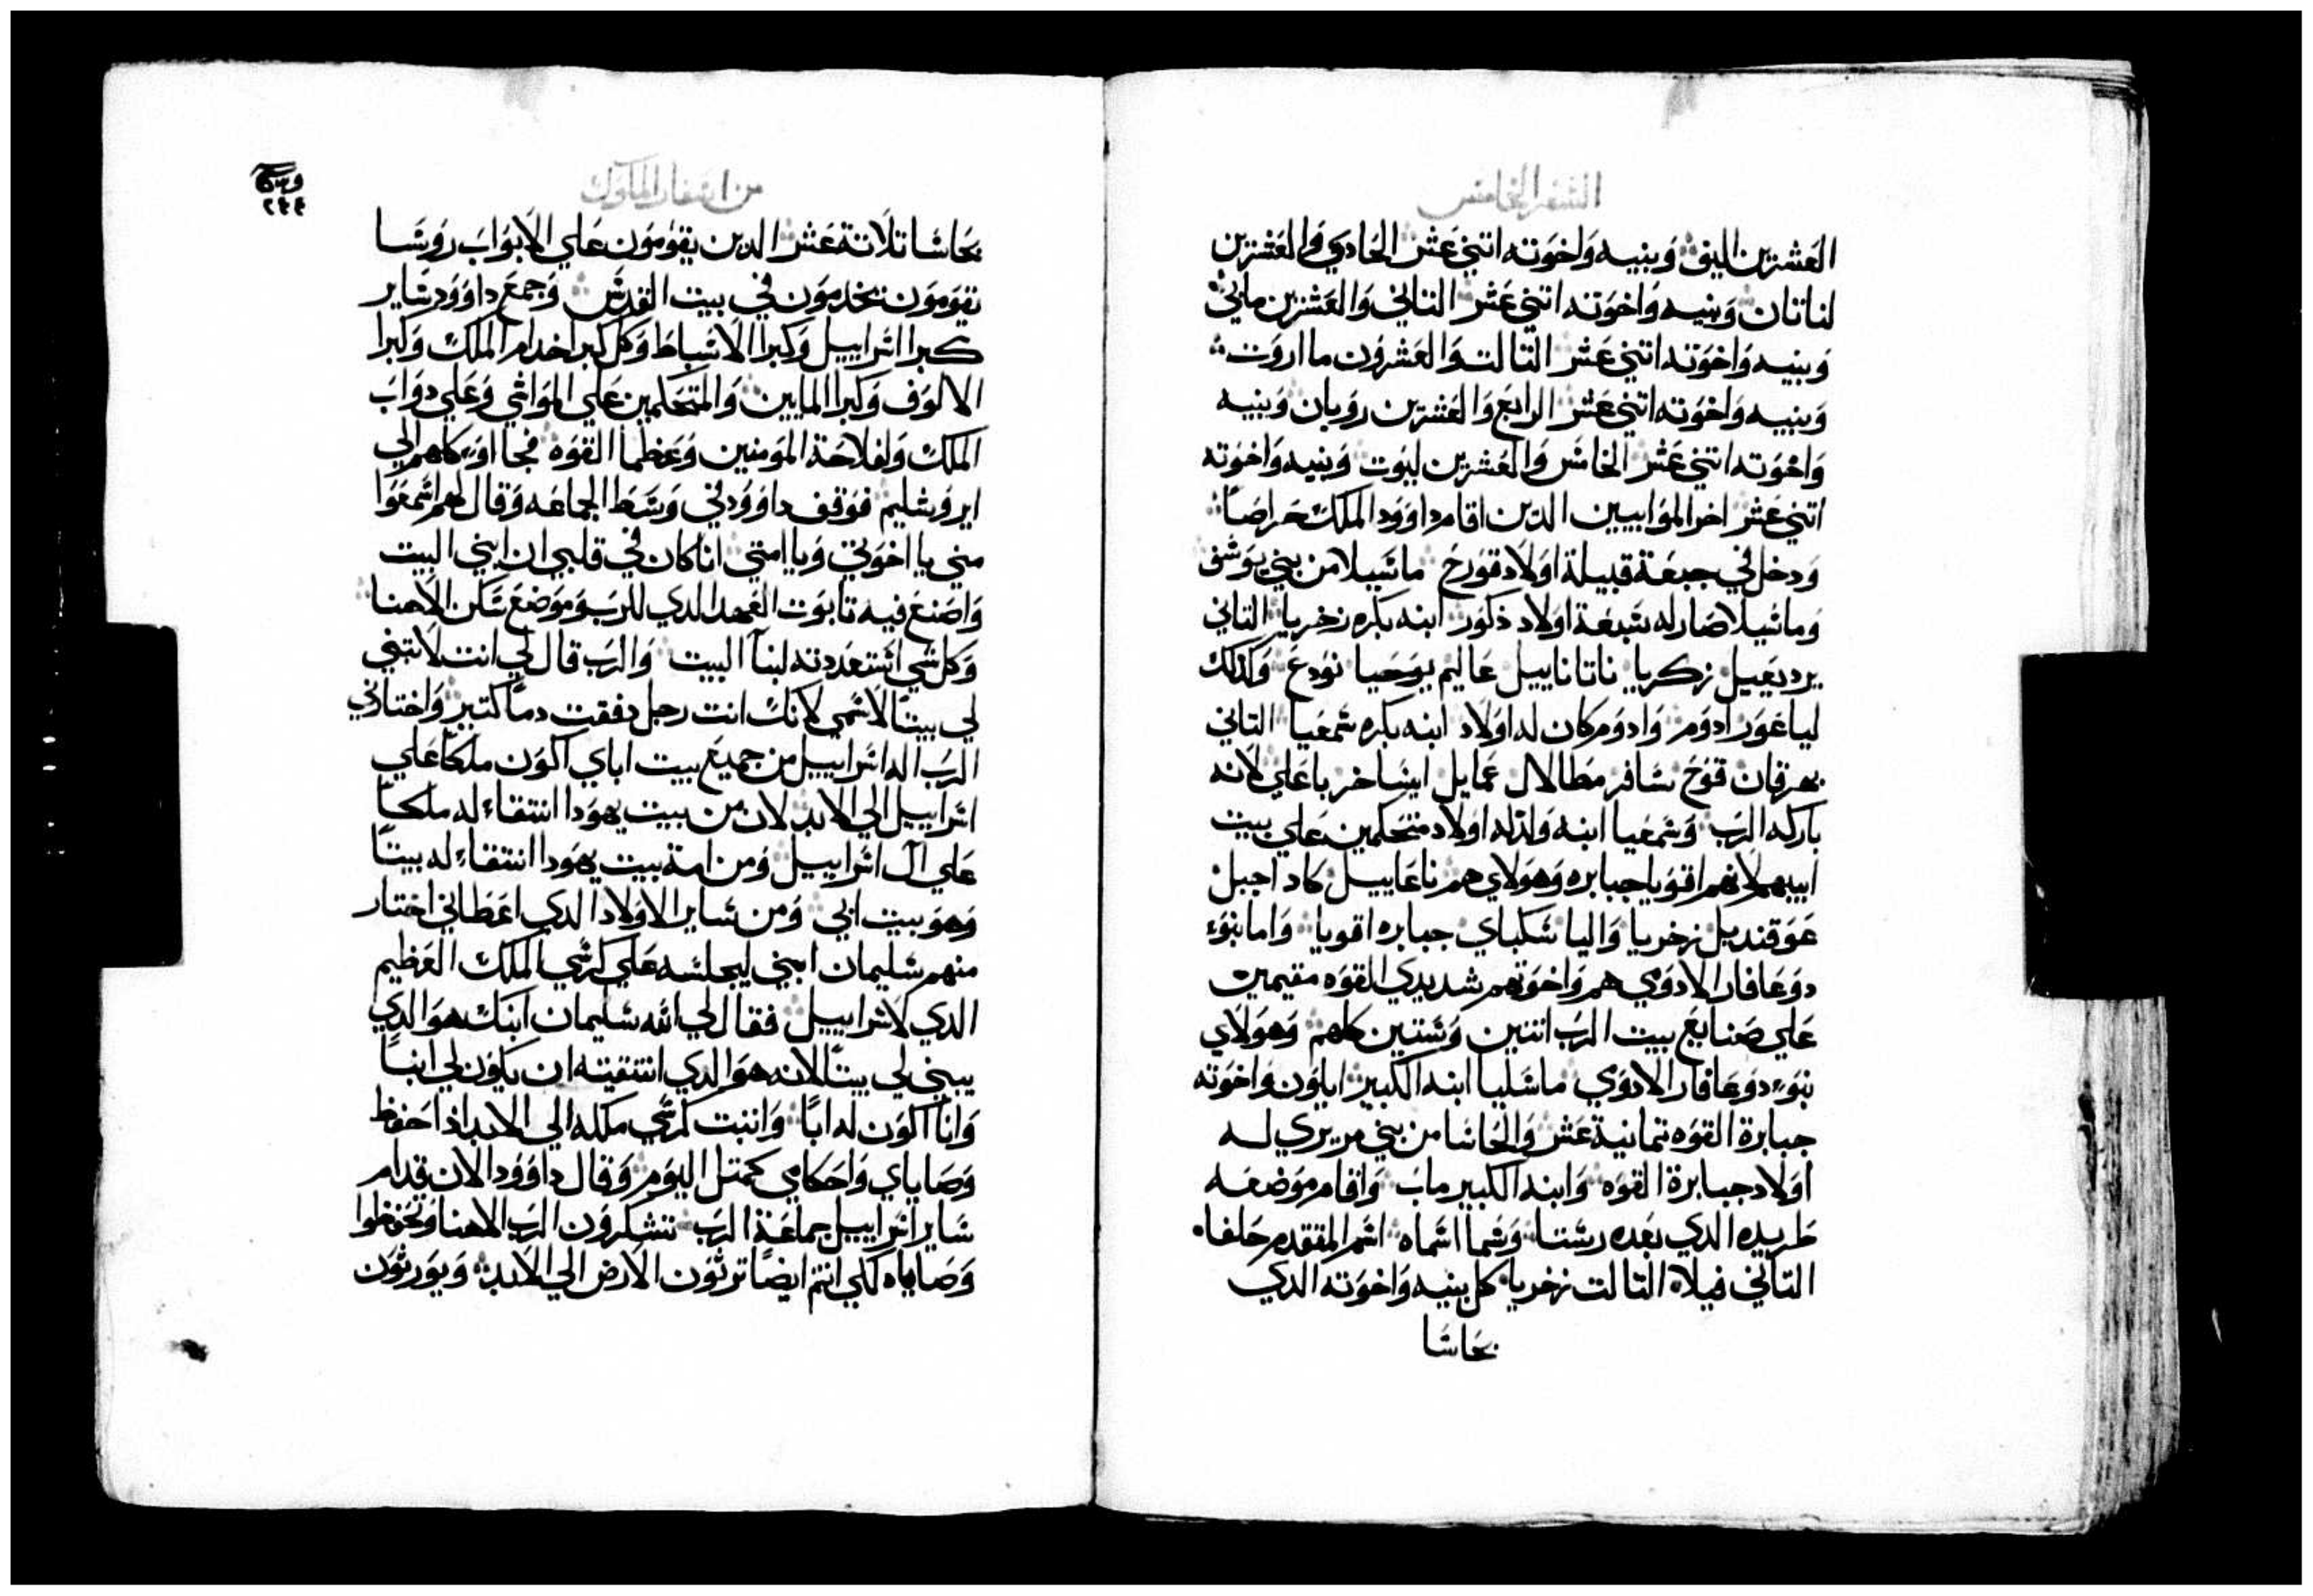 السفر الخامس
العشرين اليف وبنيه واخوته اتني عشر الحادي والعشرين
لناتان وبنيه واخوته اتني عشر التاني والعشرين ماتي
وبنيه واخوته اتني عشر التالت والعشرون مااروت
وبنيه واخوته اتني عشر الرابع والعشرين رويان وبنيه
واخوته اتني عشر الخامس والعشرين ليوت وبنيه واخوته
اتني عشر اخر الموابيين الدين اقام داوود الملك حراصاً
ودخل في جبعة قبيلة اولاد قورح ماسيلا من بني يوسف
وماسيلا صار له سبعة اولاد دكور ابنه بكره زخريا التاني
يرديعيل زكريا ناتاناييل عاليم يوحيا نودع وكدلك
لياعور ادوم وادوم كان له اولاد ابنه بكره سمعيا التاني
بهرقان قوح سافر مطالال عمايل ايساخر باعلي لانه
باركه الرب وسمعيا ابنه ولد له اولاد متحكمين علي بيت
ابيهم لانهم اقويا جبابره وهولاي هم ناعاييل كاد اجبل
عوقنديل زخريا واليا سكباي جبابره اقويا واما بنوء
دوعافار الادومي هم واخوتهم شديدي القوه مقيمين
علي صنايع بيت الرب اتنين وستين كلهم وهولاي
بنوء دوعافار الادوي ماسليا ابنه الكبير اياون واخوته
جبابرة القوه تمانية عشر والحاسا من بني مريري له
اولاد جبابرة القوه وابنه الكبير ماب واقام موضعه
طريده الدي بعده رستا وسما اسماه اسم المتقدم حلفا
التاني فيلا التالت زخريا كل بنيه واخوته الدي
بحاسا
من اسفار الملوك
٢٤٤
بحاسا تلاتة عشر الدين يقومون علي الابواب روسا
يقومون يخدمون في بيت القدس وجمع داوود ساير
كبرا اسراييل وكبرا الاسباط وكل كبرا خدام الملك وكبرا
الالوف وكبرا المايين والمتحكمين علي المواشي وعلي دواب
الملك ولفلاحة المومنين وعظما القوه فجااوء كلهم الي
ايروشليم فوقف داوود في وسط الجماعه وقال لهم اسمعوا
مني يا اخوتي ويا امتي انا كان في قلبي ان ابني البيت
واصنع فيه تابوت العهد الدي للرب وموضع سكن الاهنا
وكل شي استعددته لبنآ البيت والرب قال لي انت لا تبني
لي بيتاً لاسمي لانك انت رجل دفقت دماً كتير واختارني
الرب اله اسراييل من جميع بيت اباي اكون ملكاً علي
اسراييل الي الابد لان من بيت يهودا انتقاء له ملكاً
علي ال اسراييل ومن امة بيت يهودا انتقاء له بيتاً
وهو بيت ابي ومن ساير الاولاد الدي اعطاني اختار
منهم سليمان ابني ليجلسه علي كرسي الملك العظيم
الدي لاسراييل فقال لي الله سليمان ابنك هو الدي
يبني لي بيتاً لانه هو الدي انتقيته ان يكون لي ابناً
وانا اكون له اباً واتبت كرسي ملكه الي الابد ادا حفظ
وصاياي واحكامي كمتل اليوم وقال داوود الان قدام
ساير اسراييل جماعة الرب نتشكرون الرب الاهنا وتحفظوا
وصاياه لكي انتم ايضاً ترثون الارض الي الابد ويورثون